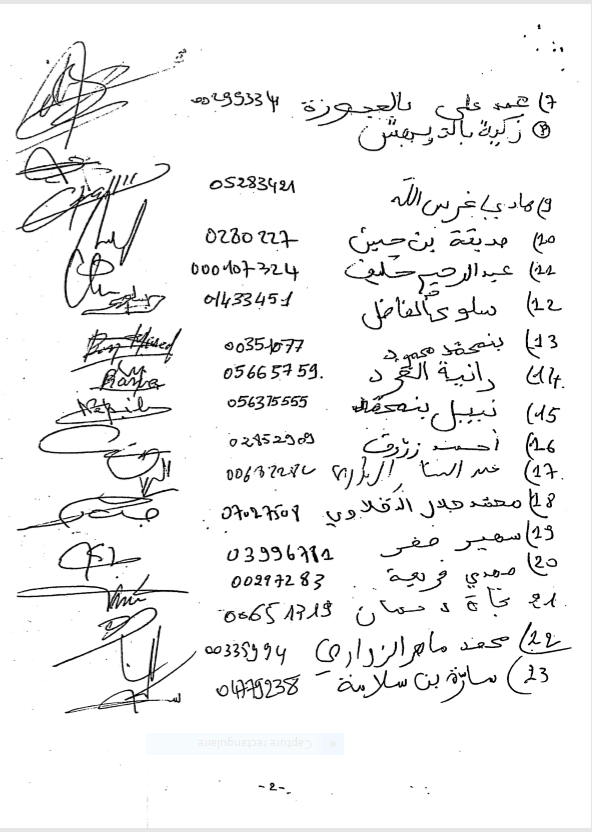 7) محمد علي بالعجوزة 00299334
8 زكية بالدويهش
9) هادي غرس الله 05283421
10) صديقة بن حسين 0280227
11) عبد الرحيم خليف 000107324
12) سلوى الفاضل 01433451
13) بنمحمد محمود 00351077
14) رانية القرد 05665759.
15) نبيل بنمحمد 056315555
16) أحمد زروق 02852909
17) عبد
18) محمد جلال الدقلاوي 07027508
19) سهير صفر 03996781
20) مهدي فريعة 00297283
21 نجاة 00651319
22) محمد ماهر الزواري 00335994
23) سارة بن سلامة 04779238
Capture rectangulaire
-2-